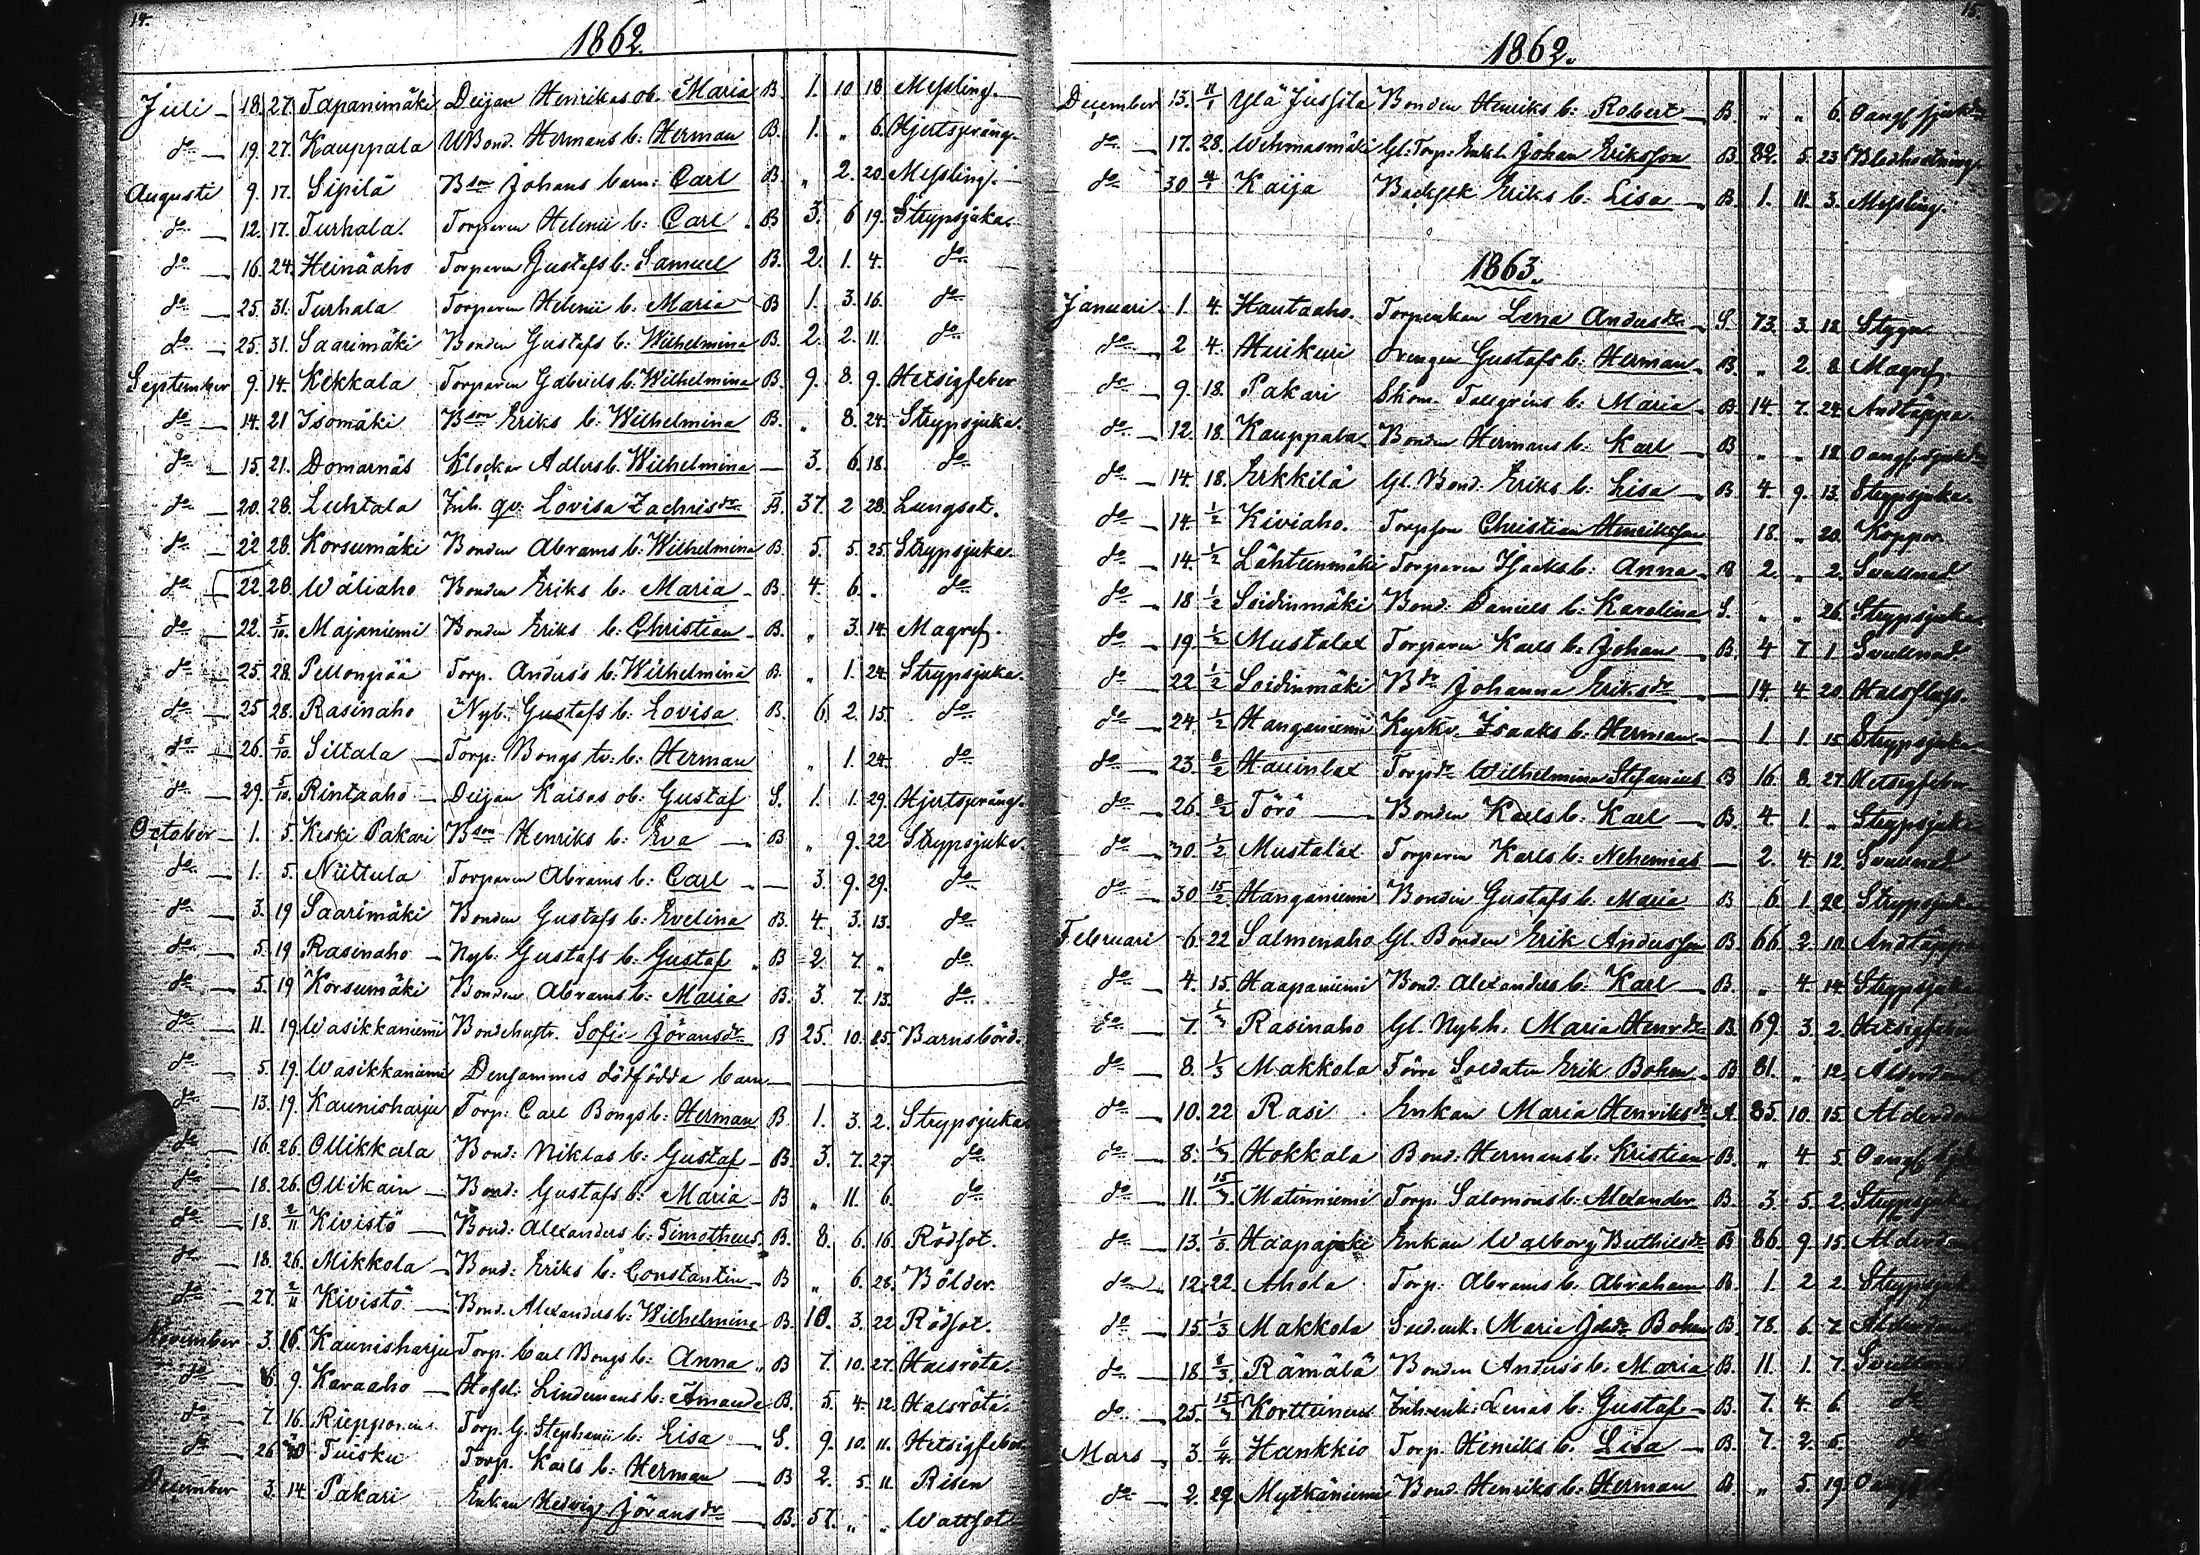 14.
1862.
Juli 18. 27. Tapanimäki Deijan Henrikas ob. Maria B. 1. 10. 18 Messling.
do 19. 27. Kauppala Bond. Hermans b: Herman B. 1. „ 6. Hjertspräng.
Augusti 9. 17. Sipilä Bson Johans barn: Carl B. „ 2. 20. Messling.
do 12. 17. Turhala. Torparen Helenii b: Carl B 3. 6 19. Strypsjuka.
do 16. 24. Heinäaho Torparen Gustafs b: Samuel B. 2. 1. 4. do
do 25. 31. Turhala Torparen Helenii b: Maria B 1. 3. 16. do
do 25. 31. Saarimäki Bonden Gustafs b: Wilhelmina B. 2. 2. 11. do
September 9. 14. Kekkala Torparen Gabriels b: Wilhelmina B. 9. 8. 9. Hetsigfeber
do 14. 21 Isomäki Bson Eriks b: Wilhelmina B. „ 8. 24. Strypsjuka.
do 15. 21. Domarnäs Klockar Adlers b. Wilhelmina — 3. 6. 18. do
do 20. 28. Luhtala Inh. qv. Lovisa Zachrisdr B. 37. 2 28. Lungsot.
do 22 28. Korsumäki Bonden Abrams b: Wilhelmina B. 5. 5. 25. Strypsjuka.
do 22. 28. Wäliaho Bonden Eriks b: Maria B. 4. 6. „ do
do 22. 5/10. Majaniemi Bonden Eriks b: Christian B. „ 3. 14. Magref.
do 25. 28. Pellonpää Torp. Anders's b: Wilhelmina B. „ 1. 24. Strypsjuka.
do 25 28. Rasinaho Nyb. Gustafs b: Lovisa B. 6. 2. 15. do
do 26. 5/10. Siltala Torp. Bongs b: Herman „ 1. 24. do
do 29. 5/10. Rintaaho Deijan Kaisas ob: Gustaf S. 1. 1. 29. Hjertspräng.
October 1. 5. Keski Pakari Bson Henriks b: Eva B „ 9. 22 Strypsjuka.
do 1. 5. Niittula Torparen Abrams b: Carl — 3. 9. 29. do
do 3. 19 Saarimäki Bonden Gustafs b: Evelina B. 4. 3. 13. do
do 5. 19 Rasinaho Nyb. Gustafs b: Gustaf B 2. 7. „ do
do 5. 19 Korsumäki Bonden Abrams b: Maria B. 3. 7. 13. do
do 11. 19. Wasikkaniemi Bondehustr. Sofi Jöransdr B 25. 10. 25. Barnsbörd.
do 5. 19. Wasikkaniemi Densammes dödfödda barn
do 13. 19. Kaunisharju Torp: Carl Bongs b: Herman B 1. 3. 2. Strypsjuka
do 16. 26. Ollikkala Bond: Niklas b: Gustaf B. 3. 7. 27. do
do 18. 26. Ollikain Bond: Gustafs b: Maria B „ 11. 6. do
do 18. 2/11 Kivistö Bond: Alexanders b: Timotheus B. 8. 6. 16. Rödsot.
do 18. 26. Mikkola Bond: Eriks b: Constantin B „ 6. 28. Bölder.
do 27. 2/11 Kivistö Bond. Alexanders b: Wilhelmina B. 10. 3. 22 Rödsot.
November 3. 16. Kaunisharju Torp. Carl Bongs b: Anna B 7. 10. 27. Halsröta
do 6 9. Karaaho Hofsl: Lindemans b: Amanda B. 5. 4. 12. Halsröta.
do 7. 16. Torp. G. Stephanii b: Lisa S. 9. 10. 11. Hetsigfeber
do 26 Tuisku Torp. Karls b: Herman B 2. 5. 11. Risen
December 3. 14. Pakari Enkan Hedvig Jöransdr B. 57. „ „ Wattsot
15.
1862.
December 13. 11/1 Ylä Jussila Bonden Henriks b: Robert B. „ „ 6. Oangf sjukd
do 17. 28. Wehmasmäki Gl. Torp. Enkl. Johan Eriksson B. 82. 5. 23 Blodhostning.
do 30 4/1 Kaija Eriks b. Lisa B. 1. 11. 3. Messling.
1863.
Januari 1. 4. Hautaaho. Torpenkan Lena Andersdr S. 73. 3. 12. Stygn.
do 2 4. Harikuri Drengen Gustafs b: Herman B. „ 2. 8 Magref.
do 9. 18. Pakari Skom. Tallgrins b: Maria B. 14. 7. 24. Andtäppa.
do 12. 18. Kauppala Bonden Hermans b: Karl B „ „ 12. Oangf sjukd
do 14. 18. Erkkilä Gl. Bond. Eriks b: Lisa B. 4. 9. 13. Strypsjuka.
do 14. 1/2 Kiviaho. Torpson Christian Henriksson 18. „ 20. Koppor.
do 14. 1/2 Lähteenmäki Torparen Isaks b: Anna B 2. „ 2. Svullnad
do 18 1/2 Soidinmäki Bond. Daniels b: Karolina S. „ „ 26. Strypsjuka.
do 19. 1/2 Mustalax Torparen Karls b: Johan B. 4 7 1. Svullnad.
do 22 1/2 Soidinmäki Bdr Johanna Eriksdr — 14. 4 20. Halsflufs.
do 24. 1/2 Hanganiemi Kyrkv. Isaaks b: Herman 1. 1. 15 Strypsjuka
do 23. 8/2 Hauinlax Torpdr Wilhelmina Stefanius B 16. 8. 27. Hetsigfeber
do 26. 8/2 Törö Bonden Karls b: Karl B. 4. 1. „ Strypsjuka
do 30. 1/2 Mustalax Torparen Karls b: Nehemias — 2. 4. 12. Svullnad
do 30 15/2. Hanganiemi Bonden Gustafs b: Maria B 6. 1. 22. Strypsjuka
Februari 6. 22 Salmenaho Gl. Bonden Erik Andersson B. 66. 2. 10. Andtäppa
do 4. 15. Haapaniemi Bond. Alexanders b: Karl B. „ 4. 14. Strypsjuka
do 7. 1/3 Rasinaho Gl. Nybh. Maria Henrdr B 69. 3. 2. Hetsigfeber
do 8. 1/3 Makkola Förre Soldaten Erik Bohm B. 81. „ 12. Ålderdom
do 10. 22 Rasi Enkan Maria Henriksdr A. 85. 10. 15. Ålderdom
do 8. 1/3 Hokkala Bond. Hermans b: Kristian B. „ 4. 5. Oangf sjukd
do 11. 15/3 Matinniemi Torp. Salomons b: Alexander B. 3. 5. 2. Strypsjuka
do 13. 1/3 Haapajoki Enkan Walborg B 86. 9. 15. Ålderdom
do 12. 22. Ahola Torp. Abrams b: Abraham B. 1. 2 2. Strypsjuka
do 15. 1/3 Makkola Sod.enk. Maria Bohm B. 78. 6. 7. Ålderdom
do 18 8/3. Rämälä Bonden Anders's b. Maria B. 11. 1. 7. Svullnad
do 25. 15/3 Kortteinen Inh.enk. Lenas b: Gustaf B. 7. 4. 6. do
Mars 3. 6/4 Hankkio Torp. Henriks b. Lisa B. 7. 2. 5. do
do 2. 29. Mytkäniemi Bond. Henriks b: Herman B. „ 5. 19.